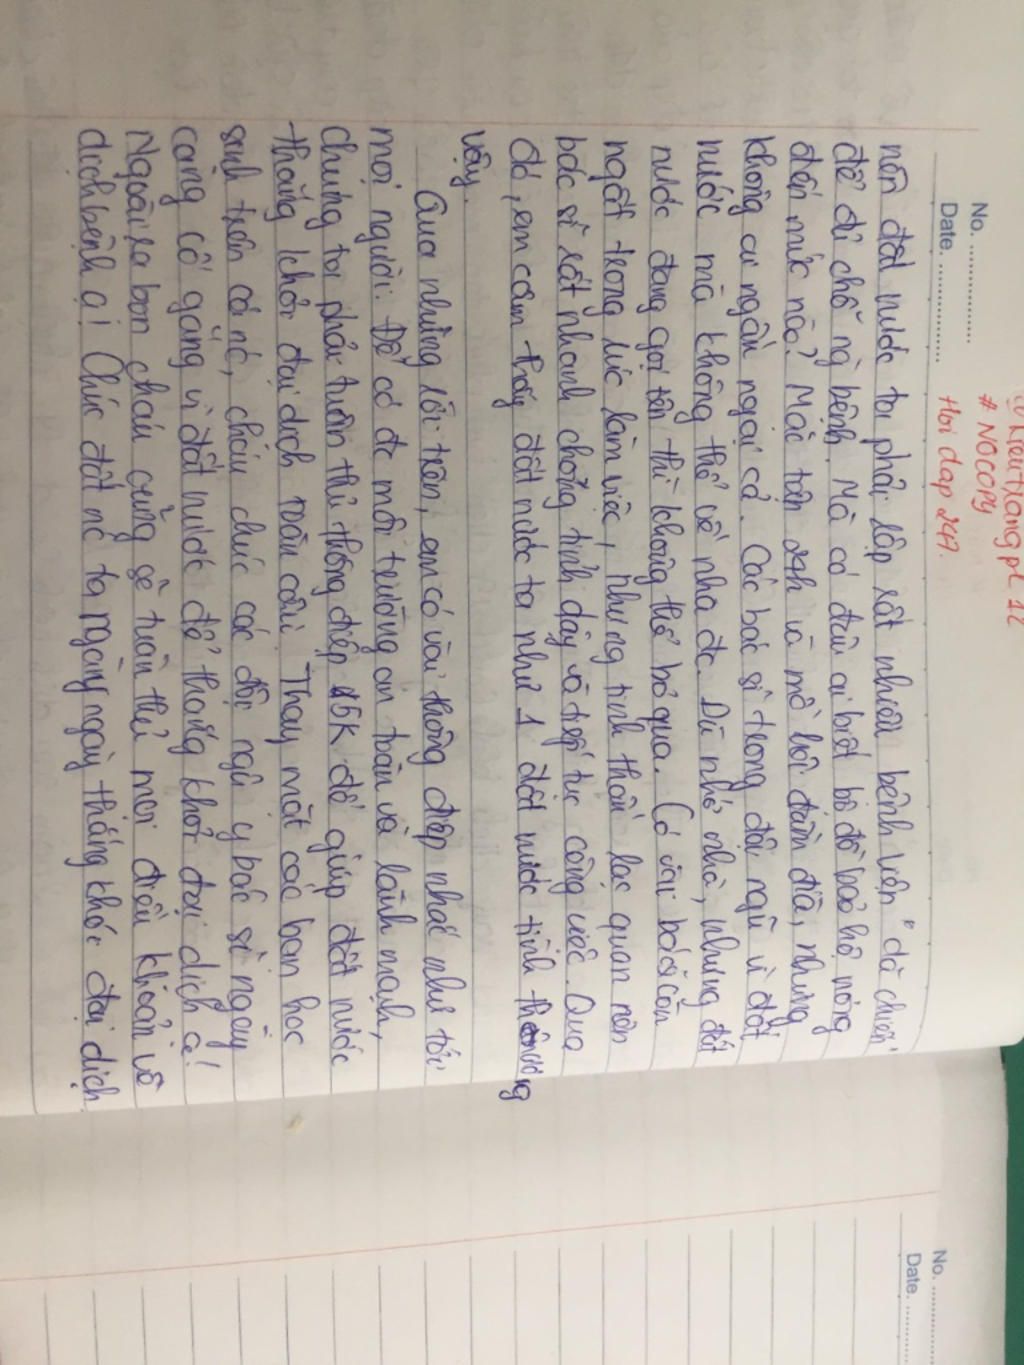 No. ................
Date. ................
Kieutrangpt 12
# NOCOPY
Hoi dap 247.
nên đất nước ta phải lập rất nhiều bệnh viện "dã chiến"
để đi chỗ ng bệnh. Mà có đâu ai biết bộ đồ bảo hộ nóng
đến mức nào? Mặc tận 24h và mồ hôi đầm đìa, nhưng
không ai ngần ngại cả. Các bác sĩ trong đội ngũ vì đất
nước mà không thể về nhà đc. Dù nhớ nhà, nhưng đất
nước đang gọi tên thì không thể bỏ qua. Có vài bác sĩ còn
ngất trong lúc làm việc, nhưng tinh thần lạc quan nên
bác sĩ rất nhanh chóng tỉnh dậy và tiếp tục công việc. Qua
đó, em cảm thấy đất nước ta như 1 đất nước tình thương
vậy.
Qua những lời trên, em có vài thông điệp nhắc nhở tới
mọi người: Để có đc môi trường an toàn và lành mạnh,
chúng ta phải tuân thủ thông điệp 5K để giúp đất nước
thắng khỏi đại dịch toàn cầu. Thay mặt các bạn học
sinh trên cả nc, cháu chúc các đội ngũ y bác sĩ ngày
càng cố gắng vì đất nước để thắng khỏi đại dịch ạ!
Ngoài ra bọn cháu cũng sẽ tuân thủ mọi điều khoản về
dịch bệnh ạ! Chúc đất nc ta ngày ngày thắng khỏi đại dịch
No. ................
Date. ................